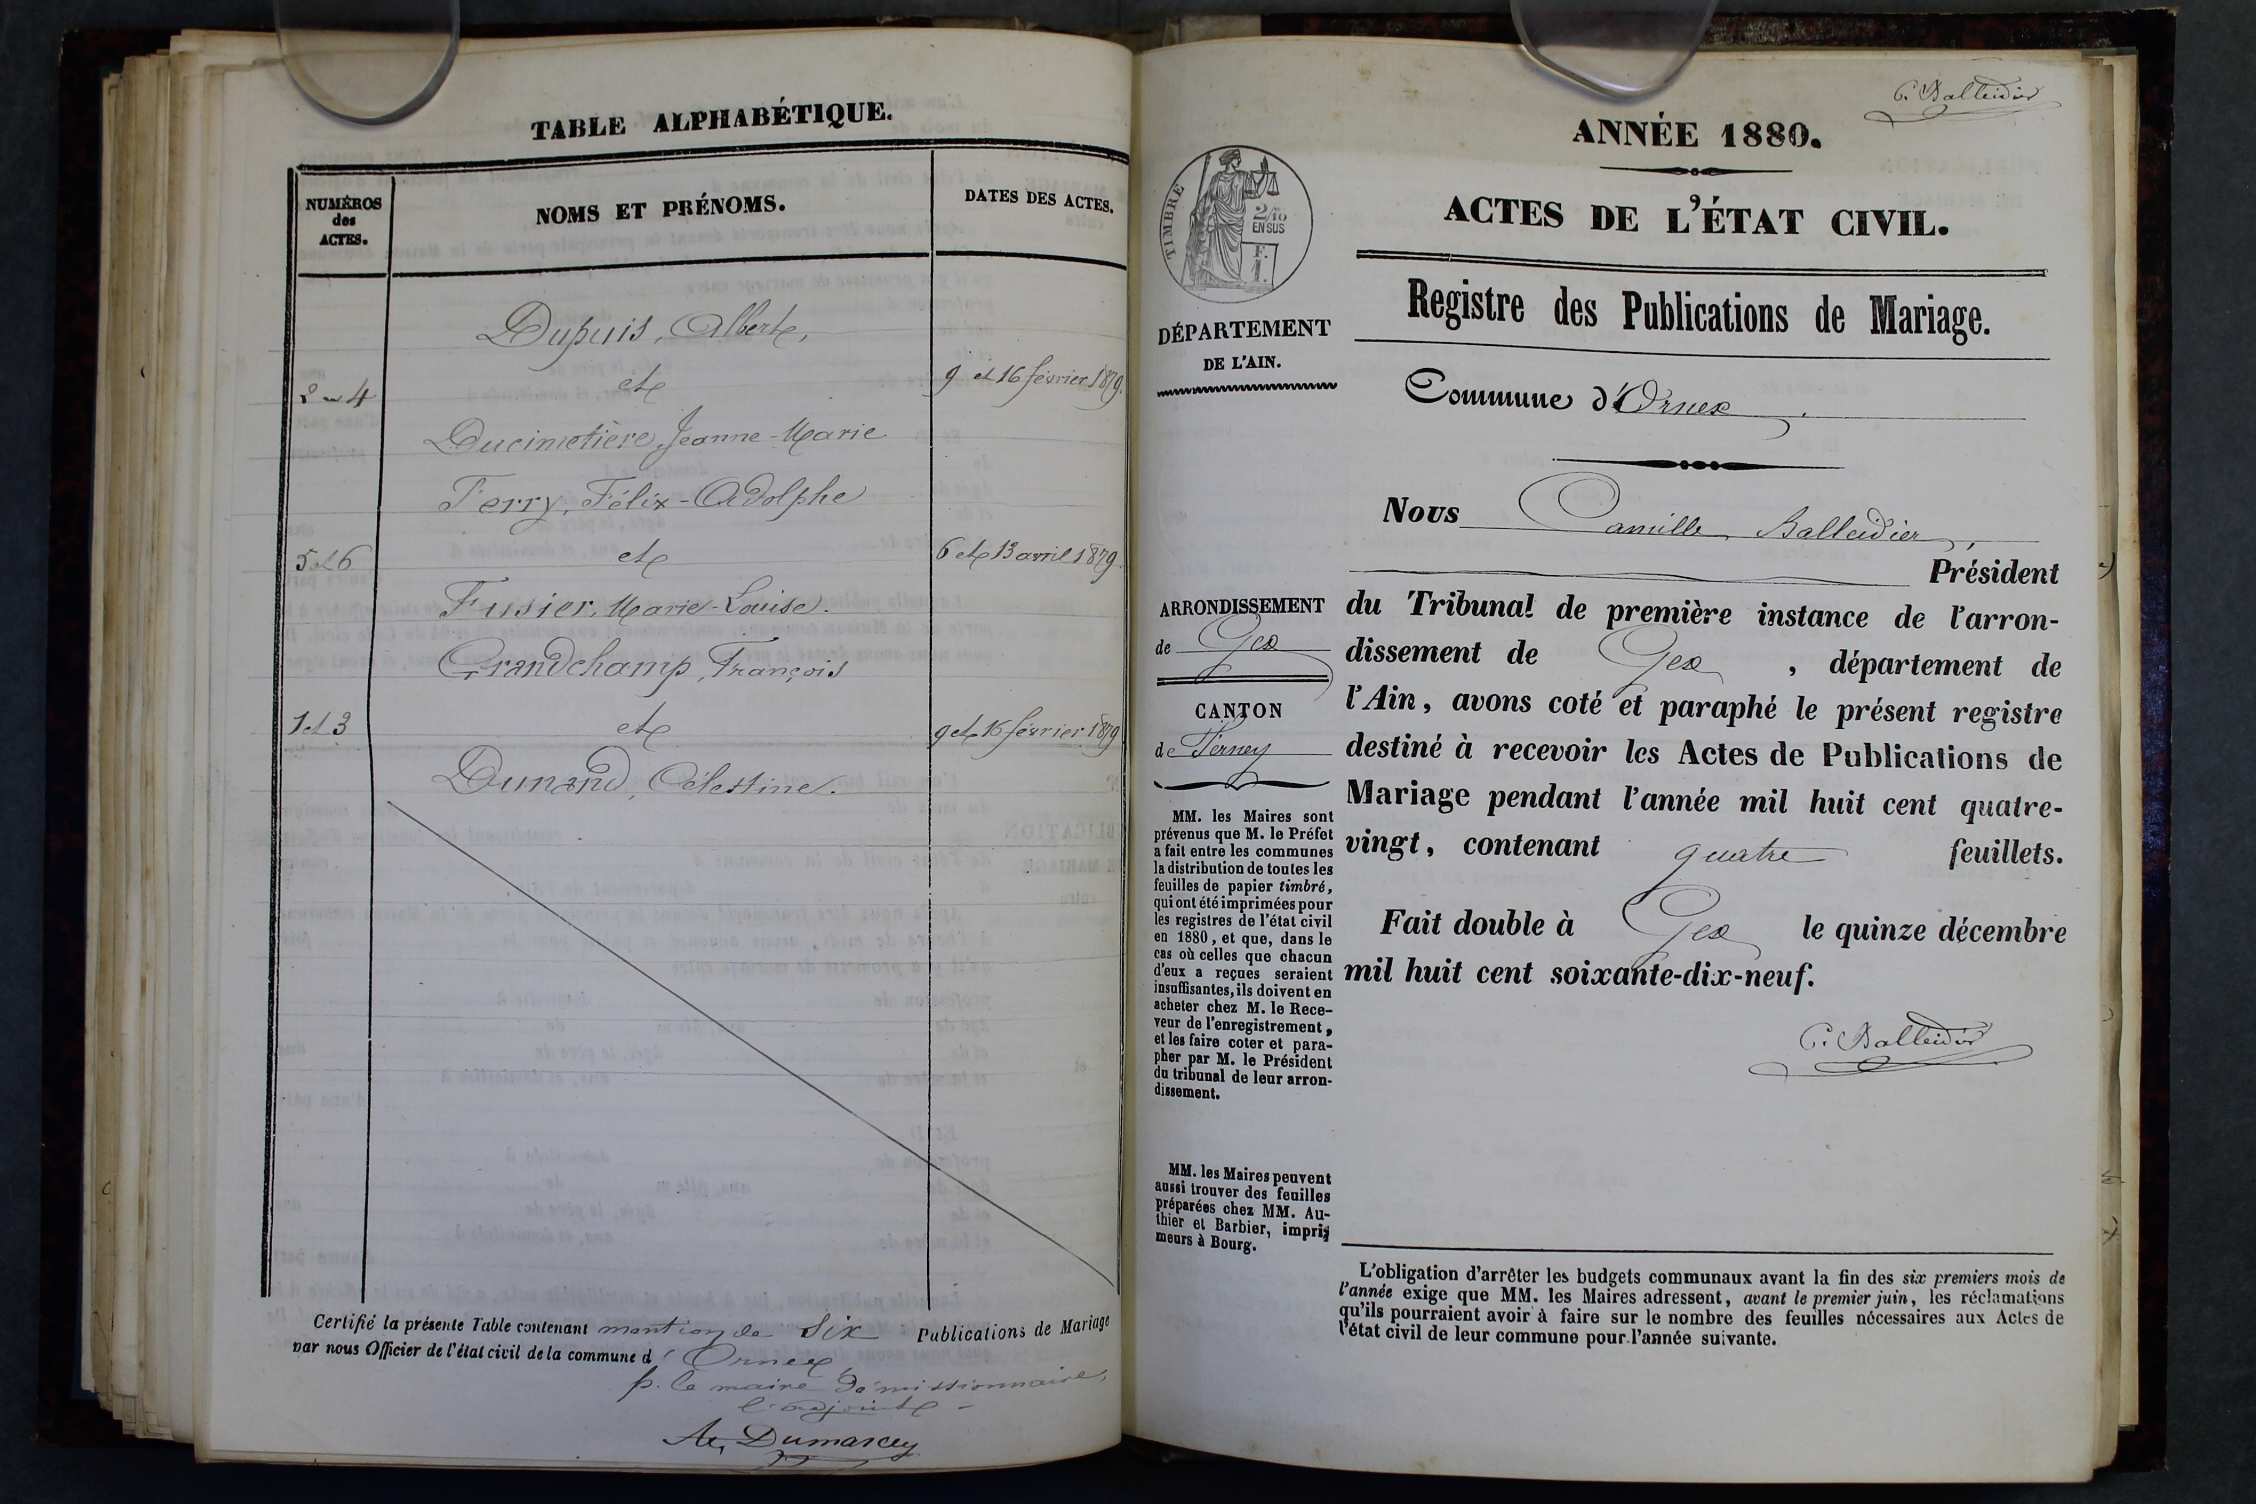 TABLE ALPHABÉTIQUE.
NUMÉROS
des
ACTES.
NOMS ET PRÉNOMS.
DATES DES ACTES.
Dupuis, Albert,
2 et 4
et
9 et 16 février 1879.
Ducimetière, Jeanne-Marie
Ferry, Félix-Adolphe
5 et 6
et
6 et 13 avril 1879.
Fusier, Marie-Louise.
Grandchamp, François
1 et 3
et
9 et 16 février 1879
Dunand, Célestine.
Certifié la présente Table contenant mention de six Publications de Mariage
par nous Officier de l'état civil de la commune d'Ornex
p. le maire démissionnaire,
l'adjoint
Dumarcey
C. Balleidier
ANNÉE 1880.
ACTES DE L'ÉTAT CIVIL.
TIMBRE
2/10
EN SUS
F.
1.
Registre des Publications de Mariage.
DÉPARTEMENT
DE L'AIN.
Commune d'Ornex.
Nous Camille Balleidier,
Président
du Tribunal de première instance de l'arron-
dissement de Gex, département de
l'Ain, avons coté et paraphé le présent registre
destiné à recevoir les Actes de Publications de
Mariage pendant l'année mil huit cent quatre-
vingt, contenant quatre feuillets.
Fait double à Gex le quinze décembre
mil huit cent soixante-dix-neuf.
C. Balleidier
ARRONDISSEMENT
de Gex
CANTON
de Ferney
MM. les Maires sont
prévenus que M. le Préfet
a fait entre les communes
la distribution de toutes les
feuilles de papier timbré,
qui ont été imprimées pour
les registres de l'état civil
en 1880, et que, dans le
cas où celles que chacun
d'eux a reçues seraient
insuffisantes, ils doivent en
acheter chez M. le Rece-
veur de l'enregistrement,
et les faire coter et para-
pher par M. le Président
du tribunal de leur arron-
dissement.
MM. les Maires peuvent
aussi trouver des feuilles
préparées chez MM. Au-
thier et Barbier, impri-
meurs à Bourg.
L'obligation d'arrêter les budgets communaux avant la fin des six premiers mois de
l'année exige que MM. les Maires adressent, avant le premier juin, les réclamations
qu'ils pourraient avoir à faire sur le nombre des feuilles nécessaires aux Actes de
l'état civil de leur commune pour l'année suivante.